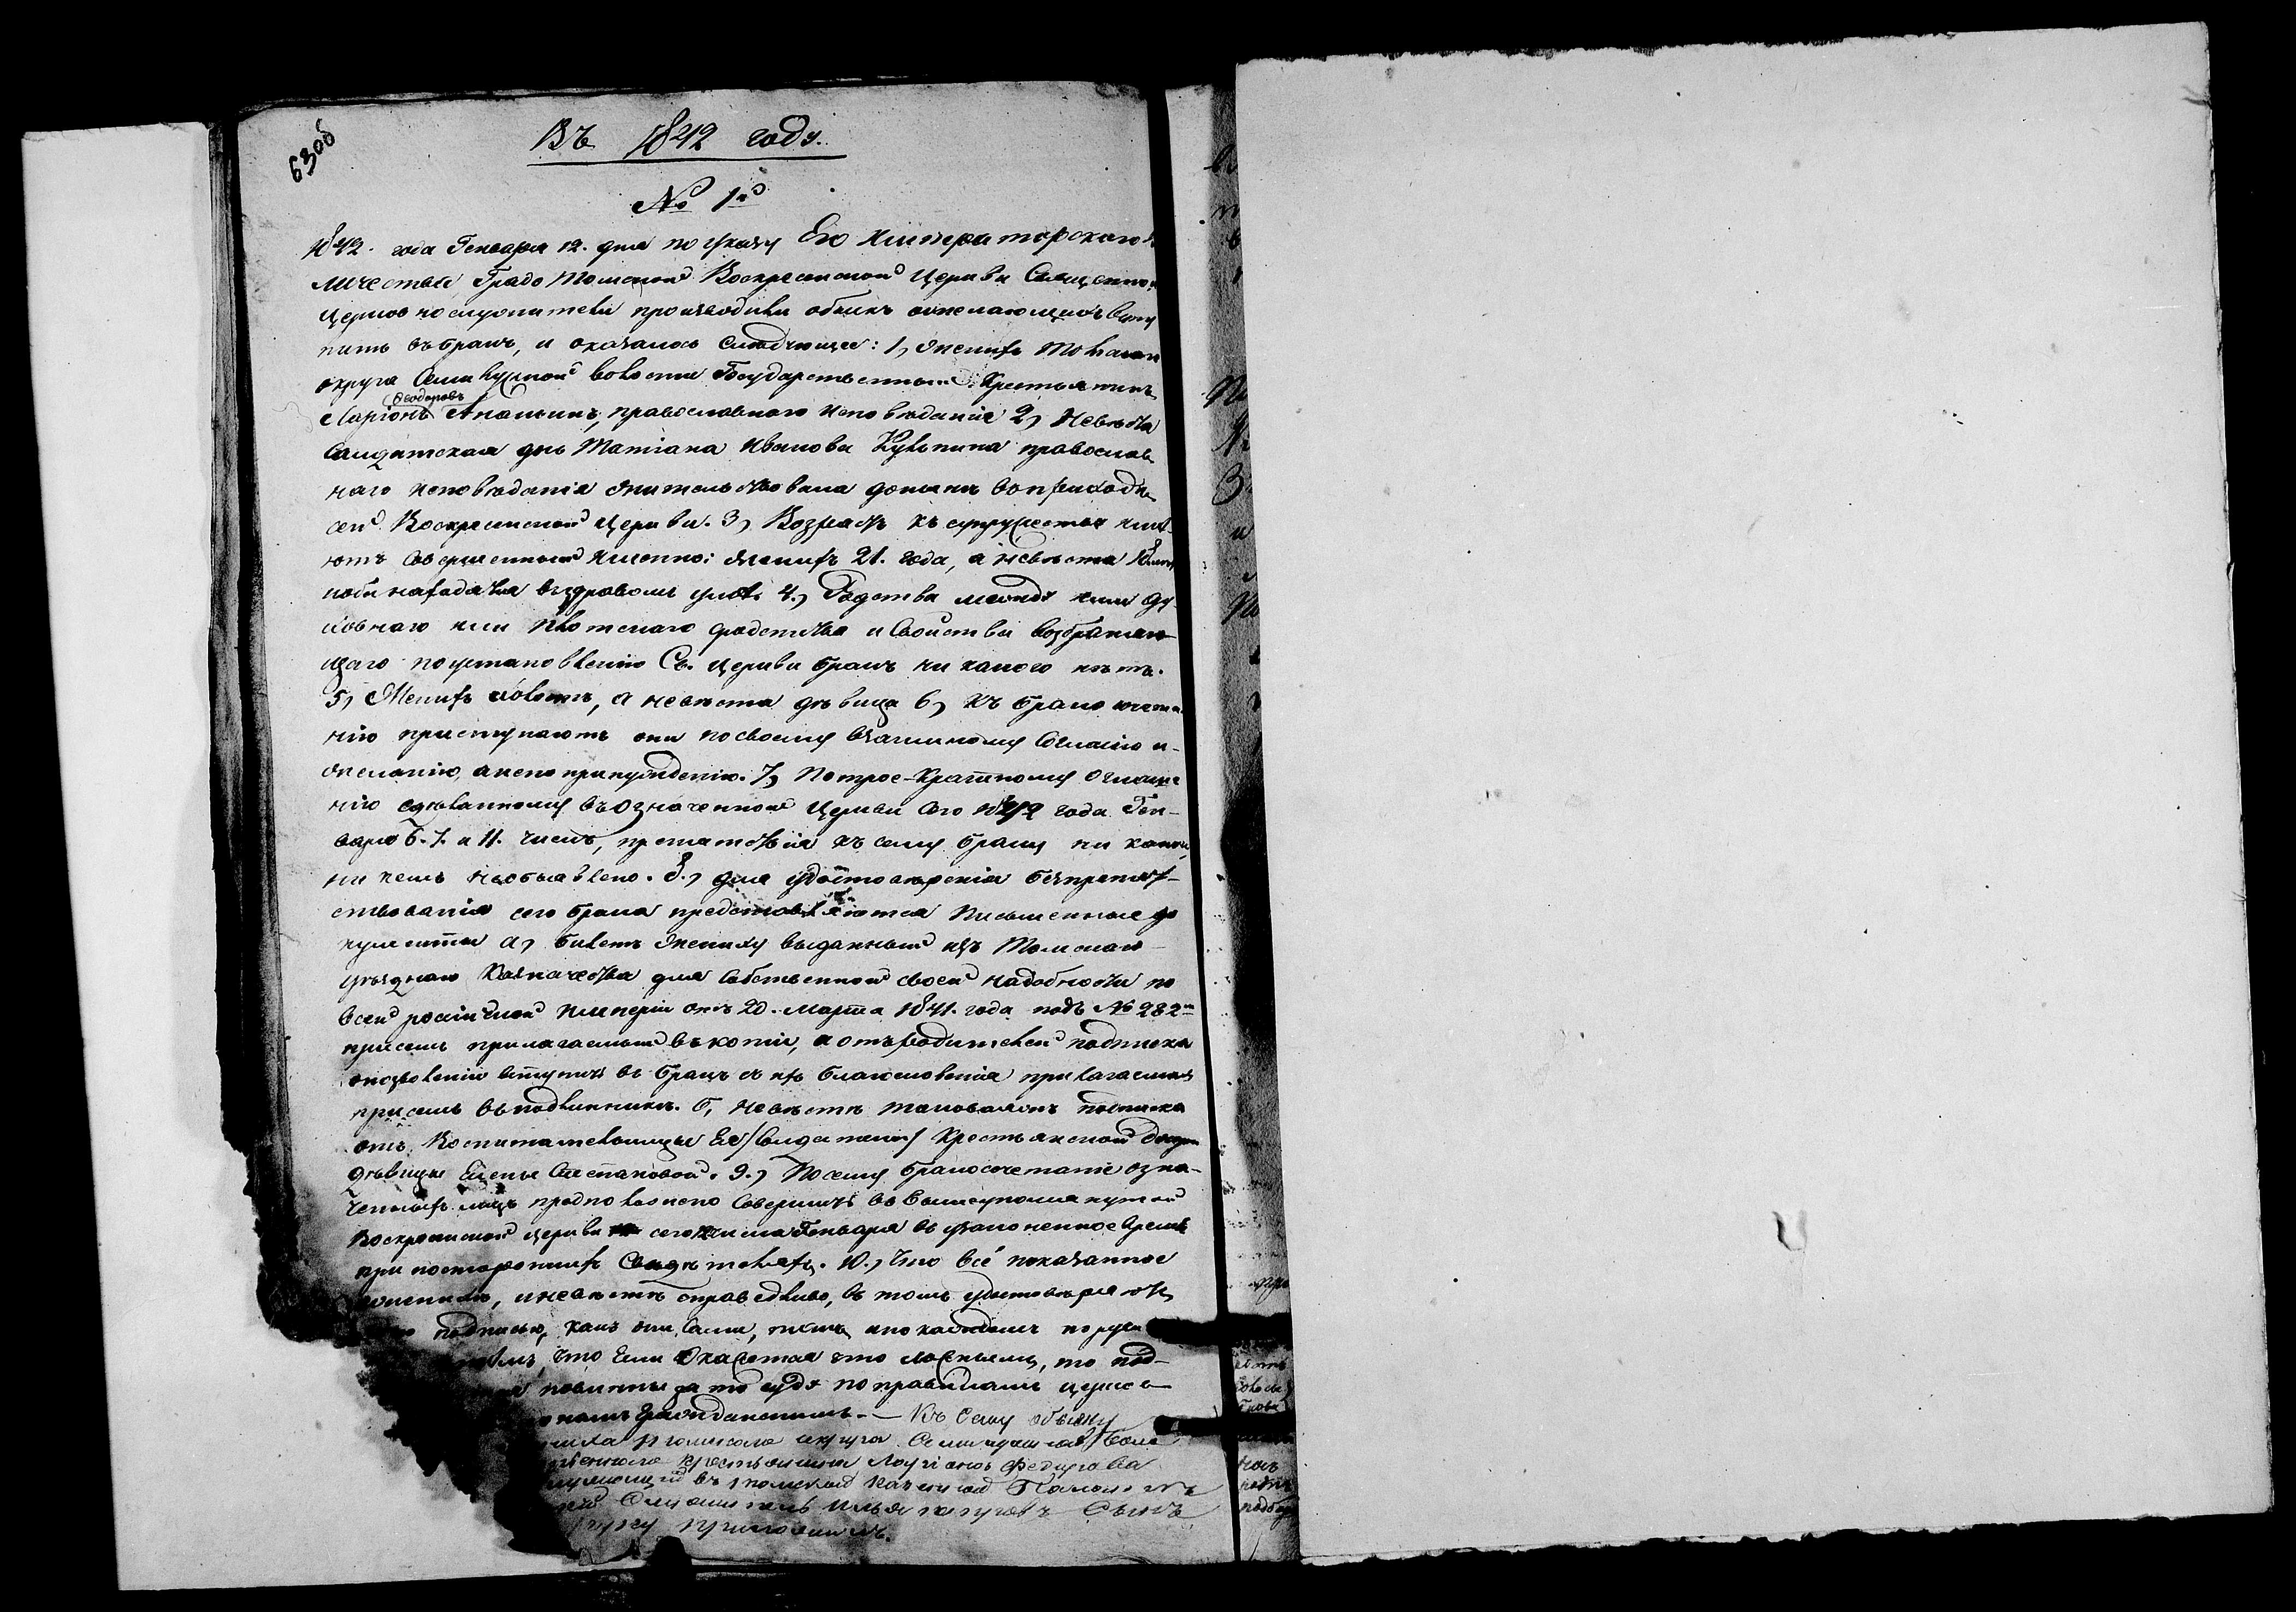 63об
Въ 1842 году.
№ 1й
1842. года Генваря 12. дня по указу Его Императорскаго Ве
личества, Градо Томской Воскресенской Церкви Священно
церковнослужители производили обыскъ о желающихъ всту
пить въ бракъ, и оказалось следующее: 1, Женихъ Томскаго
округа Семилужной волости Государственный Крестьянинъ
Ларіонъ Феодоровъ Ананьинъ, православного исповеданія 2, Невеста
Солдатская дочь Татіана Иванова православ
наго исповеданія жительствовала доныне въ приходе
сей Воскресенской церкви. 3, Возрастъ къ супружеству име
ютъ совершенный именно: женихъ 21. года, а невеста 18 летъ
оба находятся въ здравомъ уме 4, Родства между ими ду
ховнаго или плотскаго родства и свойства возбраняю
щаго по установленію Св. церкви бракъ ни какого нетъ.
5, Женихъ холостъ, а невеста девица 6, Къ бракосочета
нію приступаютъ они по своему взаимному согласію и
желанію, а не по принужденію. 7, По трое-кратному оглаше
нію сделанному въ означенной Церкви сего 1842 года Ген-
варя 6. 7. и 11. чиселъ, препятствія къ сему браку ни какого
ни кемъ не объявлено. 8, Для удостоверенія безпрепят-
ствованія сего брака представляются письменные до
кументы а, билетъ жениху выданный изъ Томскаго
уезднаго Казначества для собственной своей надобности по
всей россійской Имперіи отъ 20. Марта 1841. года подъ № 282м
при семъ прилагаемый въ копіи, и отъ родителей подписка
о позволеніи вступить въ бракъ съ ихъ благословенія прилагаемая
при семъ въ подлиннике. б, невесте таковая жъ подписка
отъ Воспитательницы Ея Крестьянской дочери
девицы Елены Степановой. 9, По сему бракосочетаніе озна-
ченныхъ лицъ предположено совершить въ вышеупомянутой
Воскресенской церкви сего числа Генваря въ узаконенное время
при постороннихъ свидетеляхъ. 10, Что всё показанное
о женихе, и невесте справедливо, въ томъ удостоверяютъ
подписью, какъ они сами, такъ и по каждомъ
что если окажется что ложнымъ, то под-
повинны за то суду по правиламъ церков
гражданскимъ. — Къ сему обыску
жениха Томскаго округа Семилужной Воло
крестьянина Ларіона Федорова
въ Томской Казенной Палате
Илья сынъ
руку приложилъ.